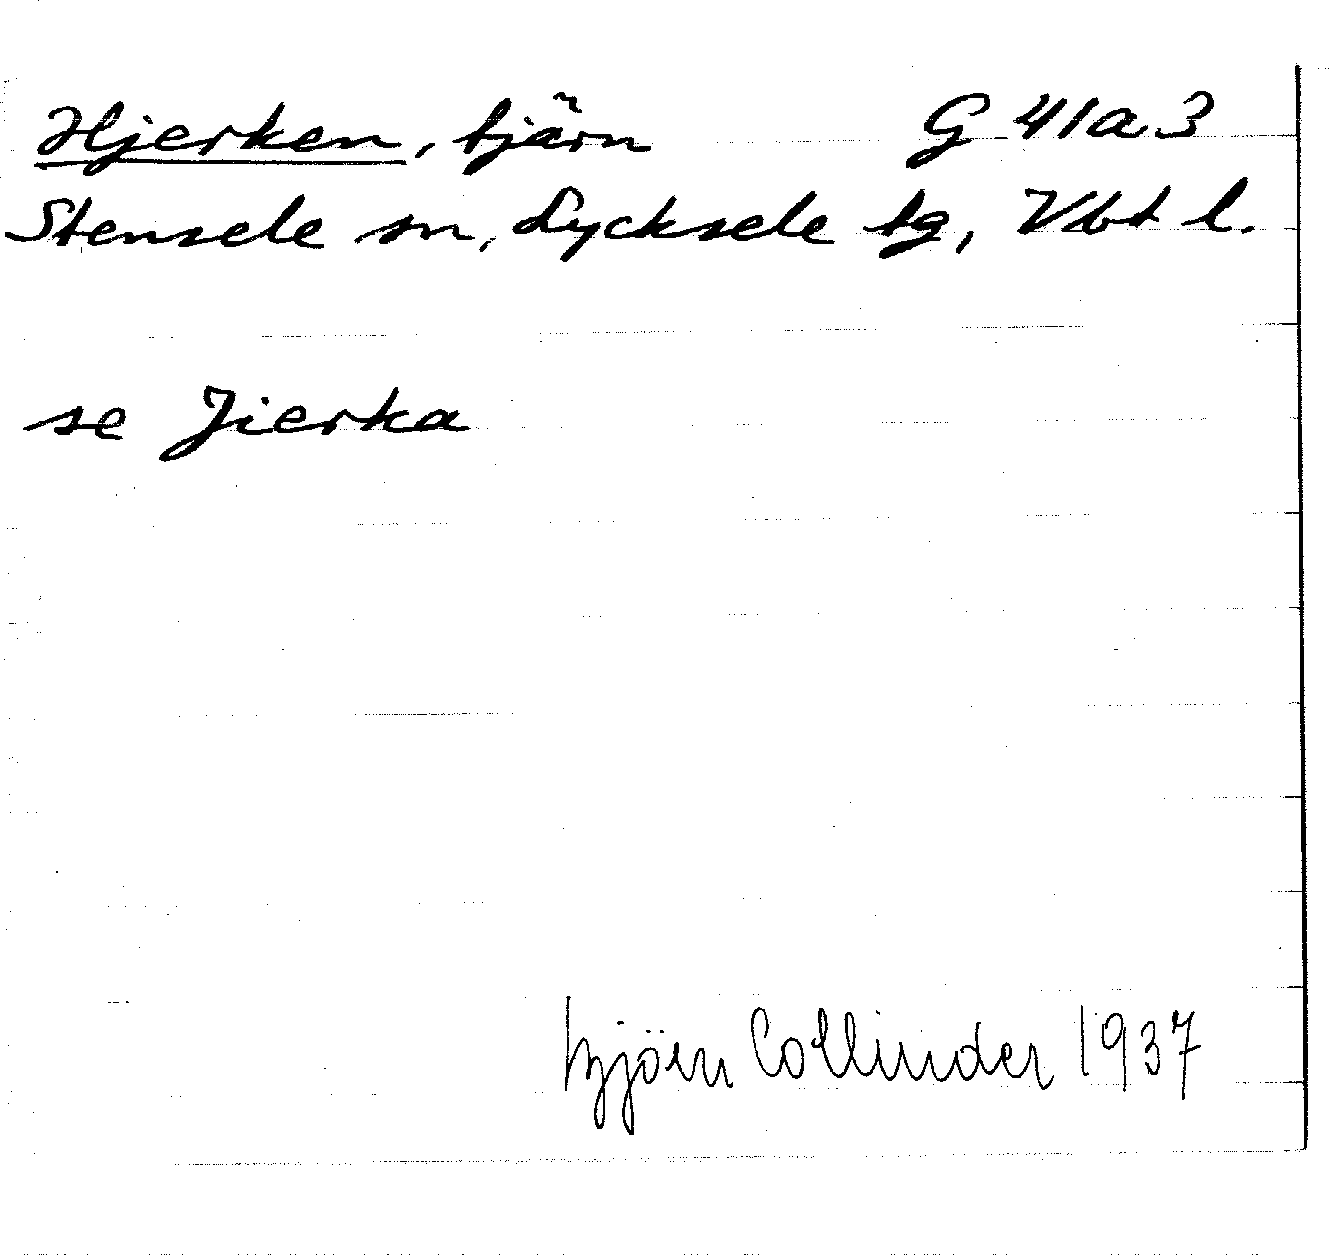 Hjerken, tjärn G 41a3
Stensele sn, Lycksele lg, Vbt l.
se Jierka
Björn Collinder 1937